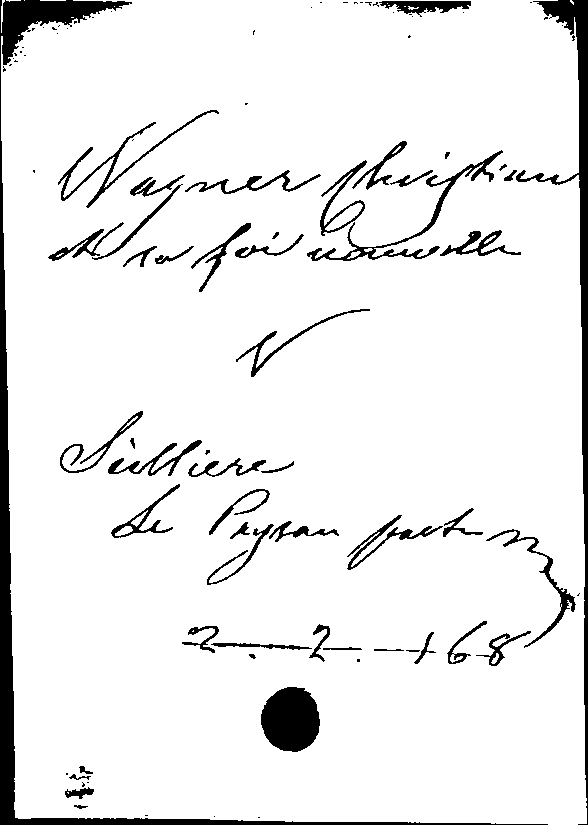 Wagner Christian
et sa foi nouvelle
V
Seillière
Le Paysan poete
2. 2. 168